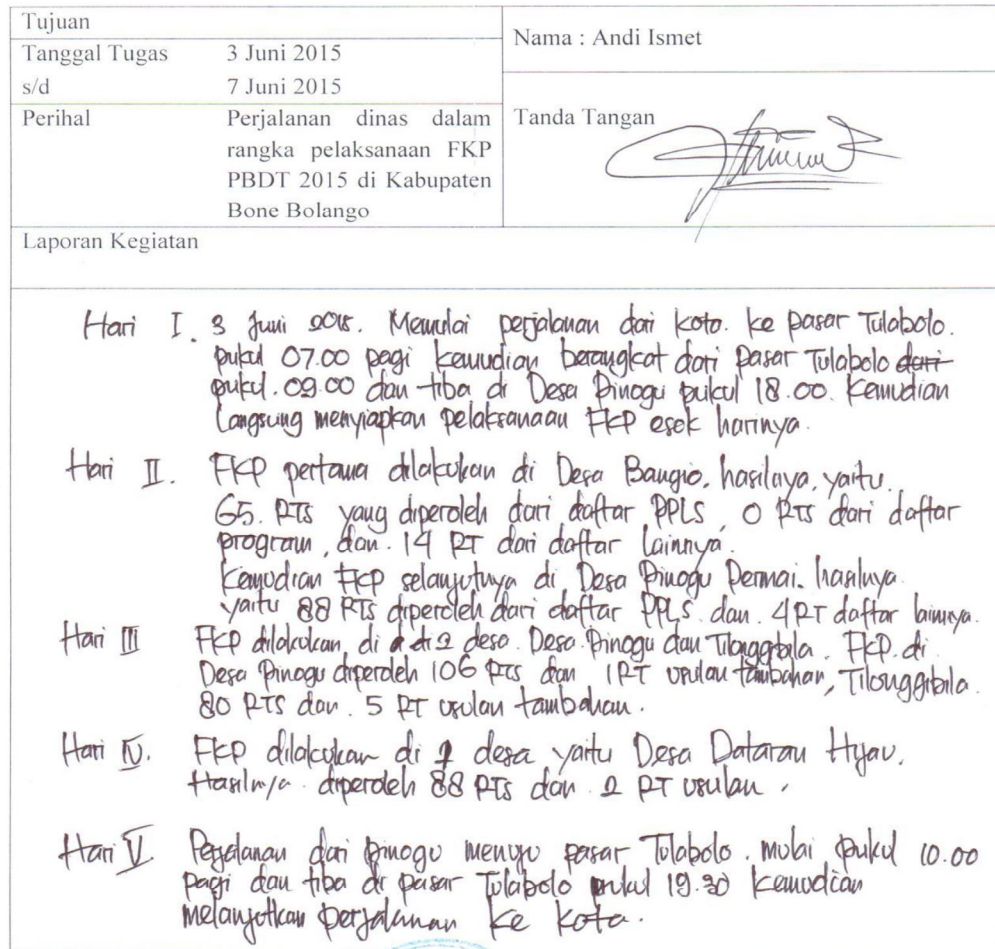 Tujuan
Nama : Andi Ismet
Tanggal Tugas 3 Juni 2015
s/d 7 Juni 2015
Perihal Perjalanan dinas dalam
rangka pelaksanaan FKP
PBDT 2015 di Kabupaten
Bone Bolango
Tanda Tangan
Laporan Kegiatan
Hari I. 3 Juni 2015. Memulai perjalanan dari kota. ke pasar Tulabolo.
pukul 07.00 pagi kemudian berangkat dari pasar Tulabolo dari
pukul. 09.00 dan tiba di Desa Pinogu pukul 18.00. Kemudian
langsung menyiapkan pelaksanaan FKP esok harinya.
Hari II. FKP pertama dilakukan di Desa Bangio. hasilnya. yaitu.
65. RTS yang diperoleh dari daftar PPLS, 0 RTS dari daftar
program, dan. 14 RT dari daftar lainnya.
Kemudian FKP selanjutnya di Desa Pinogu Permai. hasilnya
yaitu 88 RTS diperoleh dari daftar PPLS. dan. 4 RT daftar lainnya.
Hari III FKP dilakukan di di 2 desa. Desa Pinogu dan Tilonggibila. FKP. di
Desa Pinogu diperoleh 106 RTS dan 1 RT usulan tambahan, Tilonggibila.
80 RTS dan. 5 RT usulan tambahan.
Hari IV. FKP dilakukan di 1 desa yaitu Desa Dataran Hijau.
Hasilnya. diperoleh 88 RTS dan. 2 RT usulan.
Hari V. Perjalanan dari Pinogu menuju pasar Tulabolo. mulai pukul 10.00
pagi dan tiba di pasar Tulabolo pukul 19.30 kemudian
melanjutkan perjalanan ke kota.